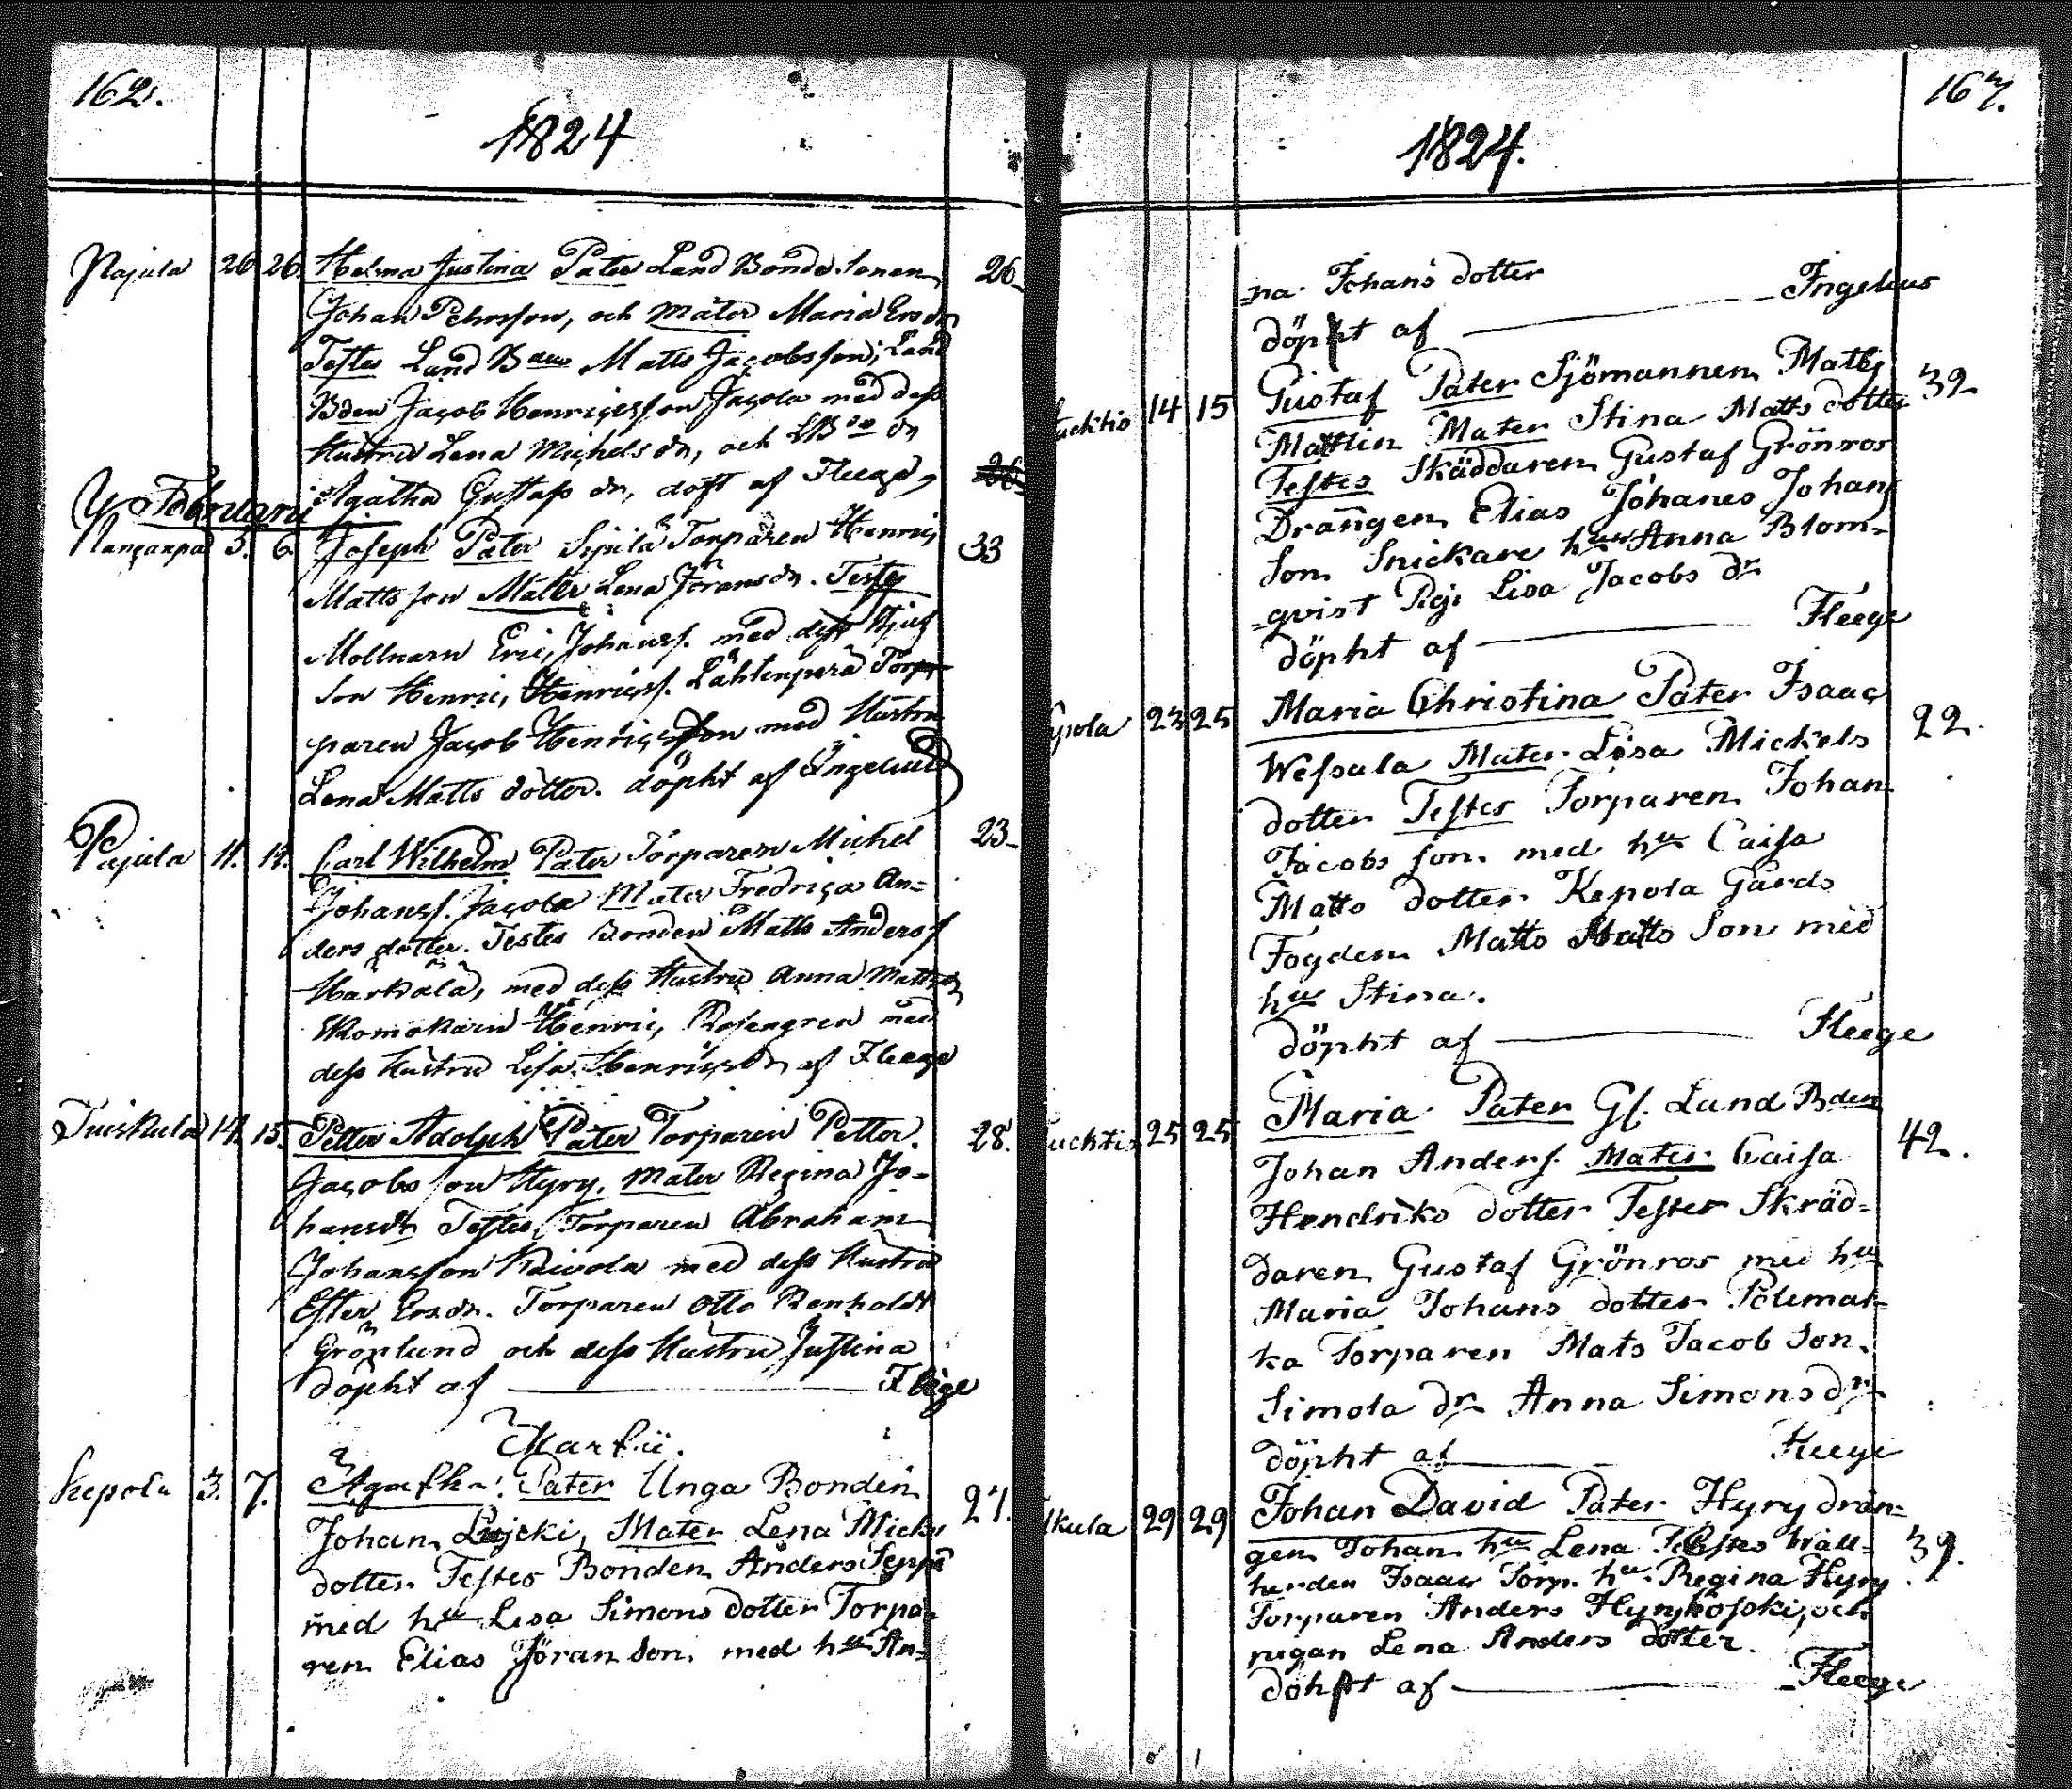 162.
1824
Pajula 26 26. Helma Justina Pater Land Bonde Sonen 26
Johan Pehrsson, och Mater Maria Ersdr
Testes Land Bdens Matts Jacobsson, Land
Bden Jacob Henricsson Jacola med dess
Hustru Lena Michelsdr, och LBde dr
Agatha Gustafs dr, döpt af Fleege
Februarii
3. 6. Joseph Pater Sipilä Torparen Henric 33
Mattsson Mater Lena Jöransdr. Testes
Molnarn Eric Johanss. med dess
Son Henric Henricss. Lähtenperä Tor-
paren Jacob Henricsson med Hustru
Lena Matts dotter. döpht af Ingelius
Pajula 11. 14. Carl Wilhelm Pater Torparen Michel 23
Johanss. Jacola Mater Fredrica An-
ders dotter. Testes Bonden Matts Anderss
Härkälä, med dess Hustru Anna Mattsdr
Skomakarn Henric Rosengren med
dess Hustru Lisa Henricsdr af Fleege
Tuiskula 14. 15. Petter Adolph Pater Torparen Petter 28.
Jacobsson Hyry, Mater Regina Jo-
hansdr Testes Torparen Abraham
Johansson Kaivola med dess Hustru
Ester Ersdr. Torparen Otto Renholdt
Grönlund och dess Hustru Justina
döpht af Fleege
Martii.
Kepola 3. 7. Agatha: Pater Unga Bonden 27.
Johan Mater Lena Mickels
dotter Testes Bonden Anders Seppä
med hu Lisa Simons dotter Torpa-
ren Elias Jöran Son, med hu An-
163.
1824.
na Johans dotter
döpht af Ingelius
14 15 Gustaf Pater Sjömannen Matts 32
Mattlin Mater Stina Matts dotter
Testes Skäddaren Gustaf Grönros
Drängen Elias Johanes Johans
Son Snickare hu Anna Blom-
qvist Pig. Lisa Jacobs dr
döpht af Fleege
23 25 Maria Christina Pater Isaac 22.
Wessala Mater Lisa Mickels
dotter Testes Torparen Johan
Jacobs son. med hu Caisa
Matts dotter Kepola Gårds
Fogden Matts Matts Son med
hu Stina.
döpht af Fleege
25 25 Maria Pater Gl. Land Bden 42.
Johan Anders. Mater Caisa
Hendriks dotter Testes Skräd-
daren Gustaf Grönros med hu
Maria Johans dotter Polemal-
ka Torparen Mats Jacob Son.
Simola dr Anna Simons dr
döpht af Fleege
29 29 Johan David Pater Hyry drän- 39.
gen Johan hu Lena Testes
Isaac Torp. hu Regina Hyry
Torparen Anders Hyrykoski, och
pigan Lena Anders dotter.
döhpt af Fleege